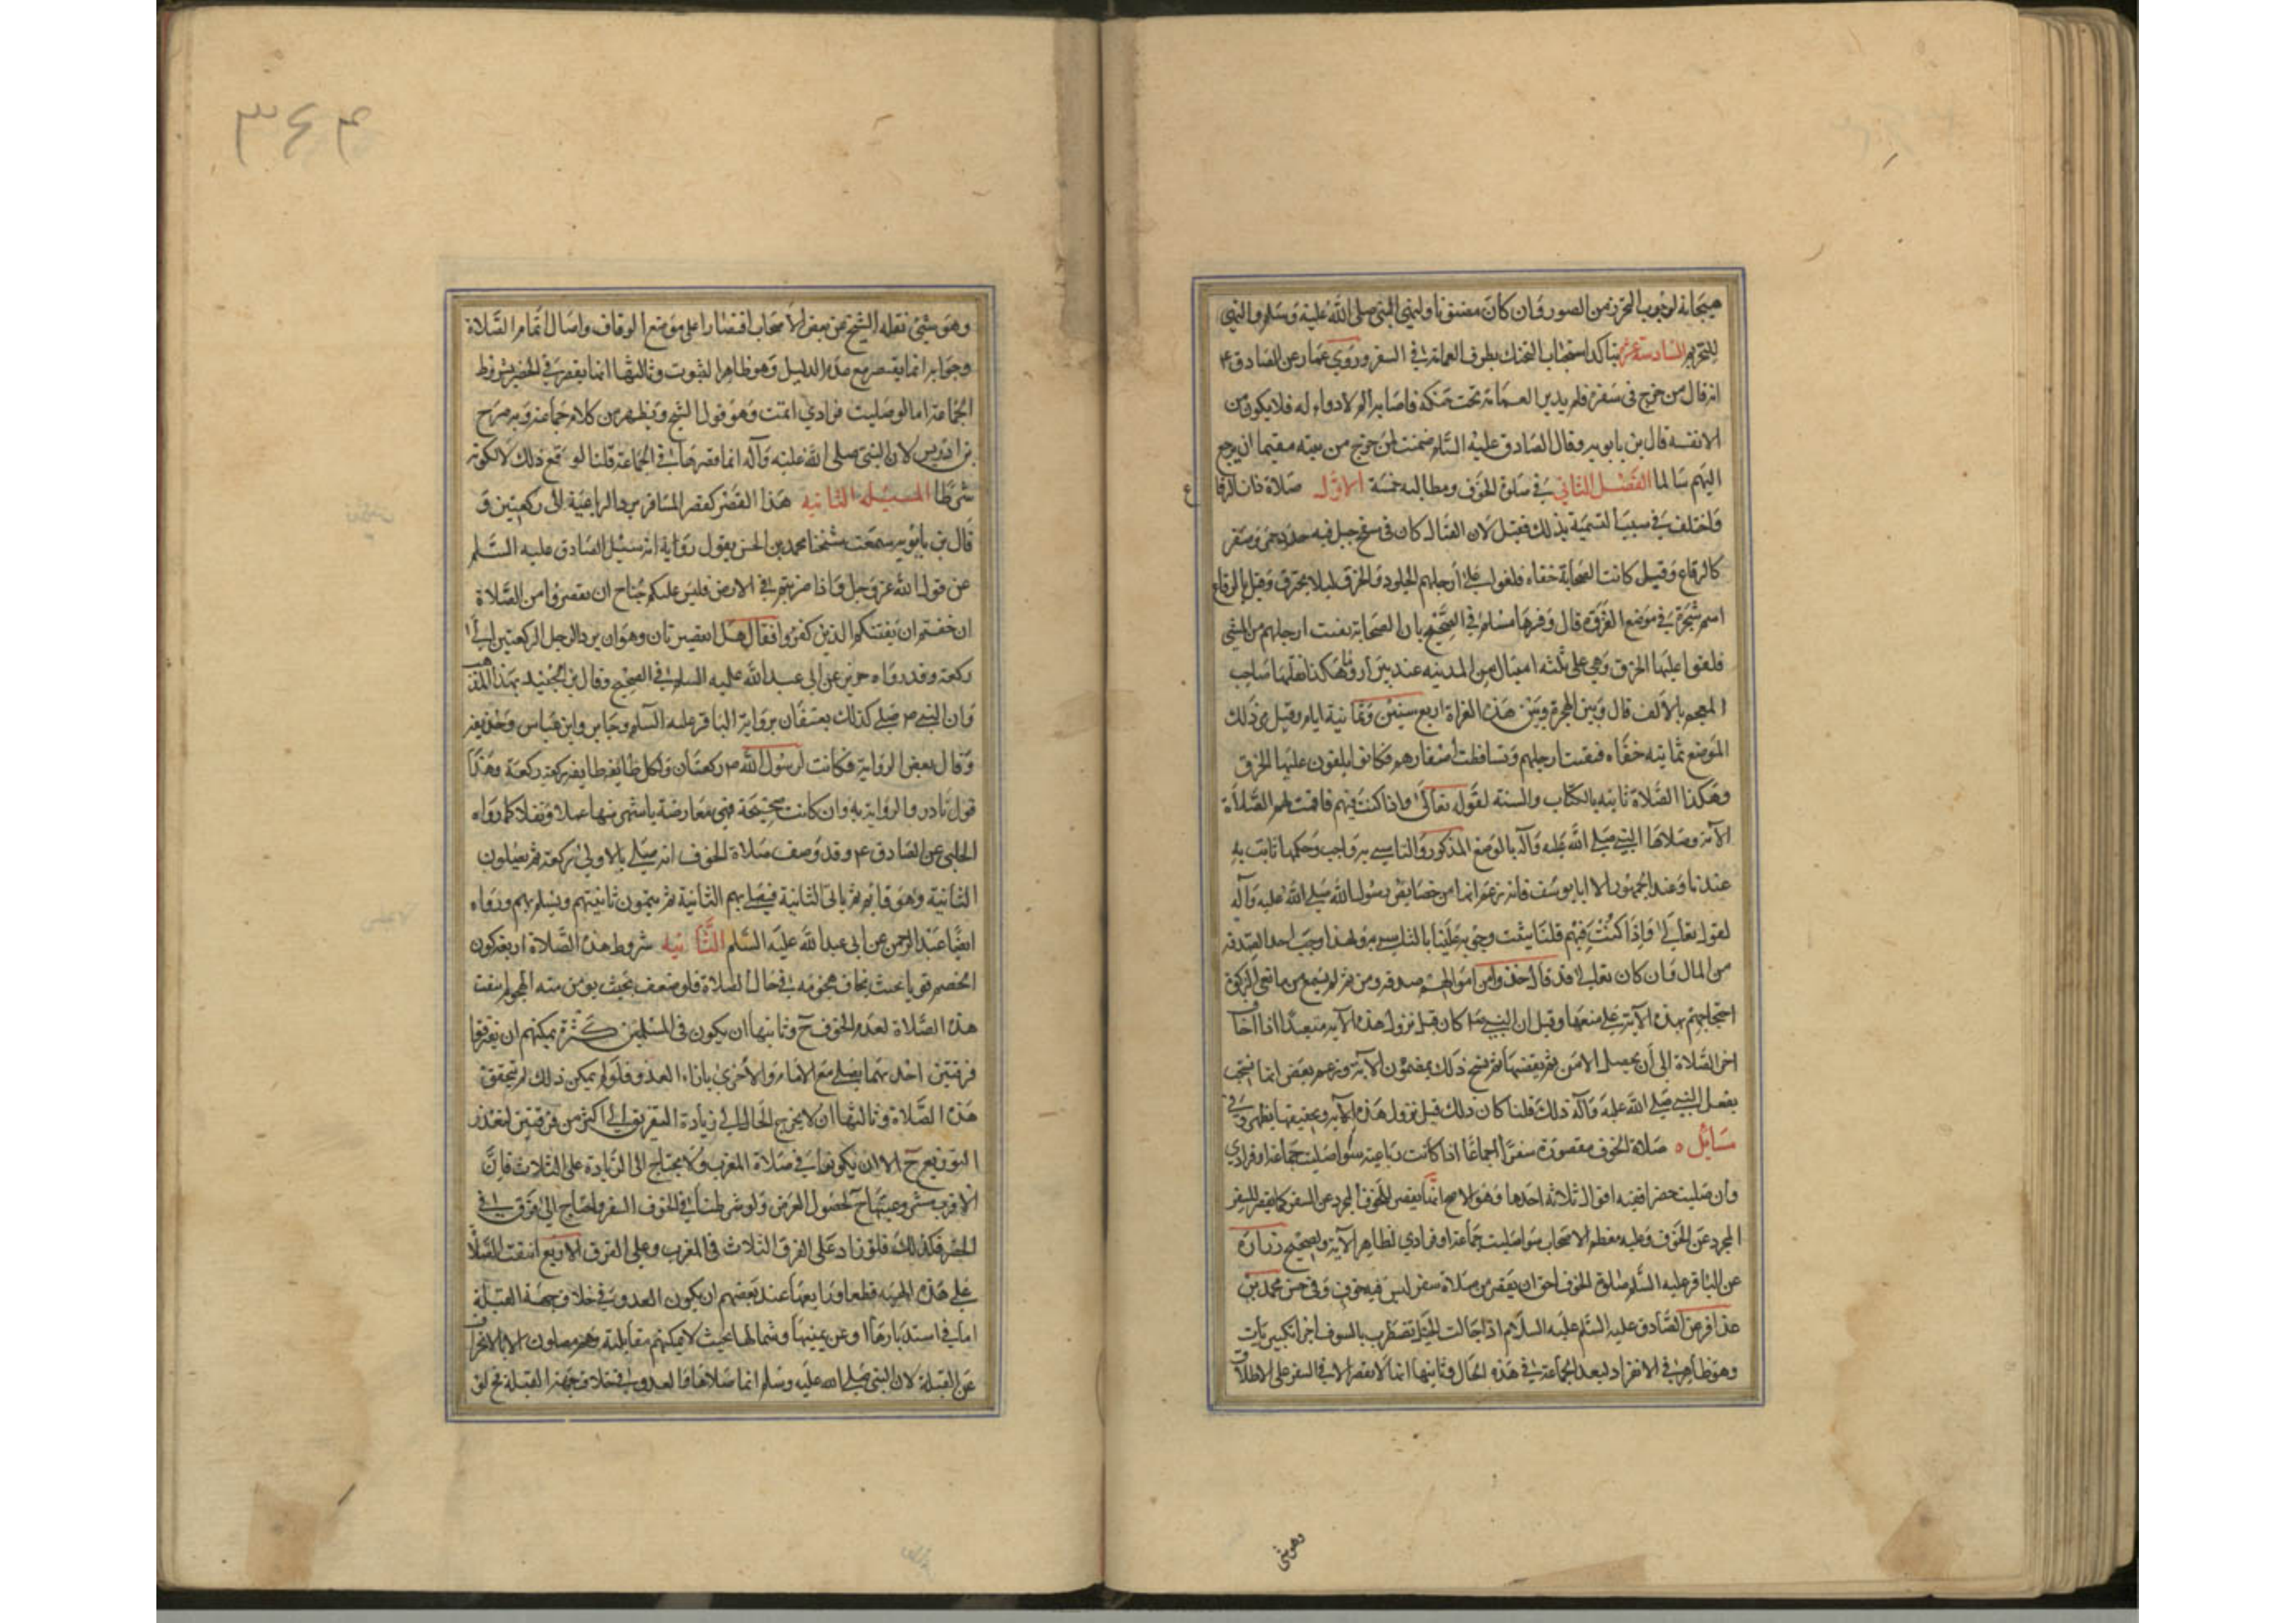 للتحريم السادسة عشر يتاكد استحباب التحنك بطرف العمامة في السفر وروي عمار عن الصادق ع
انه قال من خرج في سفره فلم يدير العمامة تحت حنكه فاصابه الم لادواء له فلا يلومن
الا نفسه قال بن بابويه وقال الصادق عليه السلم ضمنت لمن خرج من بيته معتما ان يرجع
اليهم سالما الفصل الثاني في صلوة الخوف ومطالبه خمسة الاول صلاة ذات الرقاع
واختلف في سبب التسمية بذلك فقيل لان القتال كان في سفح جبل فيه جدد حمر وصفر
كالرقاع وقيل كانت الصحابة حفاة فلفوا على ارجلهم الجلود والخرق ليلا تحترق وقيل الرقاع
اسم شجرة في موضع الغزوة قال وفسرها مسلم في الصحيح بان الصحابة نقبت ارجلهم من المشي
فلفوا عليها الخرق وهي على ثلثه اميال من المدينه عند بير اروما هكذا نقلها صاحب
المعجم بالالف قال وبين الهجرة وبين هذه الغزاة اربع سنين وثمانية ايام وقيل مر بذلك
الموضع ثمانيه حفاه فنقبت ارجلهم وتساقطت اظفارهم فكانوا يلفون عليها الخرق
وهكذا الصلاة ثابته بالكتاب والسنة لقوله تعالى واذا كنت فيهم فاقمت لهم الصلاة
الآية وصلاها النبي صلى الله عليه وآله بالموضع المذكور والتاسي به واجب وحكمها ثابت به
عندنا وعند الجمهور الا ابا يوسف فانه زعم انها من خصايص رسول الله صلى الله عليه وآله
لقوله تعالى واذا كنت فيهم قلنا يثبت وجوبه علينا بالتاسي به ولهذا وجب اخذ الصدقه
من المال وان كان تعالى قد قال خذ من اموالهم صدقه ومن ثم لم يسمع من مانعي الزكوة
احتجاجهم بهذه الآية على منعها وقيل ان النبي ص كان قبل نزول هذه الآيه متعبدا اذا خاف
اخر الصلاة الى ان يحصل الامن ثم يقضيها ثم نسخ ذلك بمضمون الآية وزعم بعض انما نسخت
بفعل النبي صلى الله عليه وآله ذلك قلنا كان ذلك قبل نزول هذه الآيه وفي
مسائل ه صلاة الخوف مقصورة سفرا اجماعا اذا كانت رباعية سوا صليت جماعة او فرادي
وان صليت حضرا ففيه اقوال ثلاثه احدها وهو الاصح انها يقصر للخوف المجرد عن السفر كما يقصر للسفر
المجرد عن الخوف وعليه معظم الاصحاب سوا صليت جماعة او فرادي لظاهر الآية ولصحيح زرارة
عن الباقر عليه السلم صلوة الخوف احق ان يقصر من صلاة سفر ليس فيه خوف وفي حسن محمد بن
عذافر عن الصادق عليه السلم اذا جالت الخيل تضطرب بالسيوف اجزا تكبيرتان
وهو ظاهر في الانفراد لبعد الجماعة في هذه الحال وثانيها انها لا تقصر الا في السفر على الاطلاق
وهوشي
٣٤٣
وهو شئ نقله الشيخ عن بعض الاصحاب اقتصارا على موضع الوفاق واصالة اتمام الصلاة
وجوابه انما يقتصر مع عدم الدليل وهو ظاهر الثبوت وثالثها انما يقصر في الحضر بشرط
الجماعة اما لو صليت فرادي اتمت وهو قول الشيخ ويظهر من كلام جماعة وبه صرح
بن ادريس لان النبي صلى الله عليه وآله انما قصرها في الجماعة قلنا لوقوع ذلك لا لكونه
شرطا المسئله الثانيه هذا القصر كقصر المسافر برد الرباعية الى ركعتين و
قال بن بابويه سمعت شيخنا محمد بن الحسن يقول رواية انه سئل الصادق عليه السلم
عن قول الله عز وجل واذا ضربتم في الارض فليس عليكم جناح ان تقصروا من الصلاة
ان خفتم ان يفتنكم الذين كفروا فقال هذا تقصير ثان وهو ان يرد الرجل الركعتين الى
ركعة وقد رواه حريز عن ابي عبد الله عليه السلم في الصحيح وقال بن الجنيد بهذا المذهب
وان النبي ص صلى كذلك بعسفان برواية الباقر عليه السلم وجابر وابن عباس وحذيفة
وقال بعض الرواية فكانت لرسول الله ص ركعتان ولكل طايفة ركعة ركعة وهذا
قول نادر والرواية به وان كانت صحيحة فهي معارضة باشهر منها عملا ونقلا كما رواه
الحلبي عن الصادق ع وقد وصف صلاة الخوف انه يصلي بالاولى ركعة ثم يصلون
الثانية وهو قايم ثم ياتي الثانية فيصلي بهم الثانية ثم يتمون ثانيتهم ويسلم بهم ورواه
ايضا عبد الرحمن عن ابي عبد الله عليه السلم الثانيه شروط هذه الصلاة اربعة كون
الخصم قويا بحيث يخاف هجومه في حال الصلاة فلو ضعف بحيث يومن منه الهجوم انتفت
هذه الصلاة لعدم الخوف ح وثانيها ان يكون في المسلمين كثرة يمكنهم ان يفترقوا
فرقتين احدهما يصلي مع الامام والاخرى بازاء العدو فلو لم يمكن ذلك لم يتحقق
هذه الصلاة وثالثها ان لا يخرج الحال الى زيادة التفريق الى اكثر من فرقتين لتعذر
التوزيع ح الا ان يكونوا في صلاة المغرب ولا يحتاج الى الزيادة على الثلاث فان
الاقرب مشروعيتها ح لحصول الغرض ولو شرطنا في الخوف السفر واحتاج الى فرق في
الحضر فكذلك فلو زاد على الفرق الثلاث في المغرب وعلى الفرق الاربع انتفت الصلاة
على هذه الهيئه قطعا ورابعها عند بعضهم ان يكون العدو في خلاف جهة القبلة
اما في استدبارها او عن يمينها وشمالها بحيث لا يمكنهم مقابلته وهم مصلون الا بالانحراف
عن القبلة لان النبي صلى الله عليه وسلم انما صلاها والعدو في خلاف جهة القبلة فلو